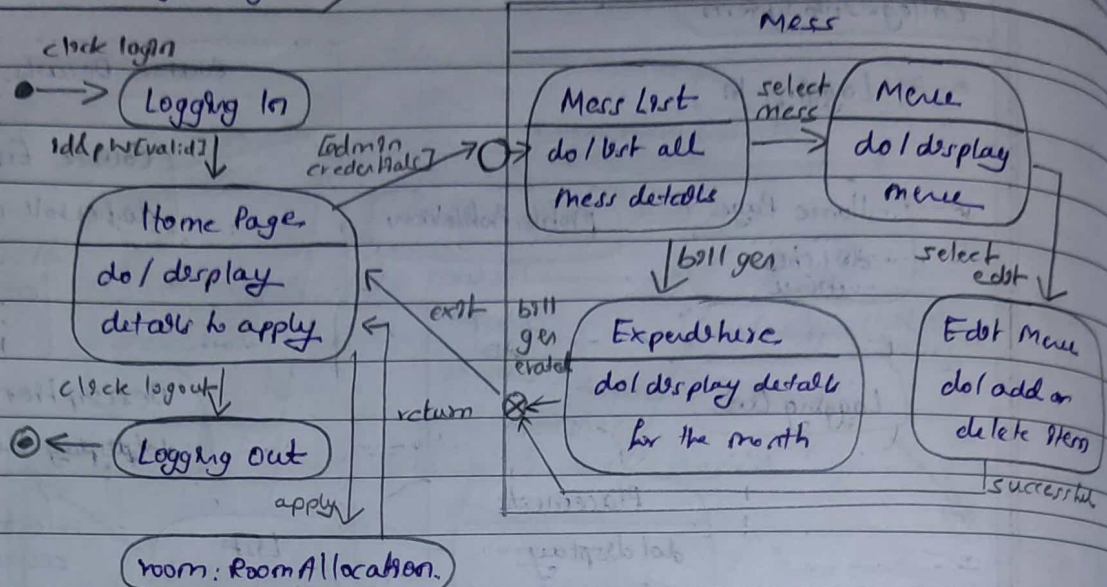 Mess
click login
Logging In
idd pw[valid]
[admin
credentials]
Home Page
do / display
details to apply
click logout
Logging out
apply
return
room: RoomAllocation.
exit
Mess List
do / list all
mess details
select
mess
Menu
do / display
menu
bill gen
select
edit
bill
gen
erated
Expenditure
do / display details
for the month
Edit Menu
do / add or
delete item
successful